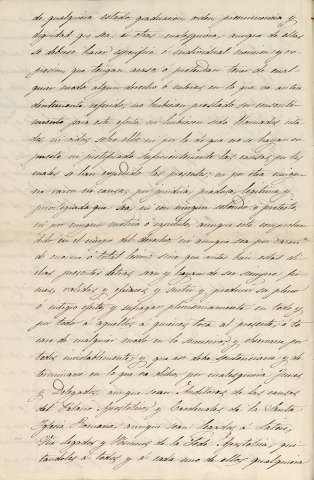 de qualquiera estado, graduacion orden preeminencia y
dignidad que sea, ú otras cualesquiera, aunque de ellas
se debiese hacer especifica é individual mencion y ex-
presion, que tengan acaso ó pretendan tener de cual-
quier modo algun derecho ó interes en lo que va ante-
dentemente referido, no hubiesen prestado su consenti-
miento para este efecto, ni hubiesen sido llamados cita-
dos ni oidos sobre ello, ni por lo el que no se hayan ex-
puesto ni justificado suficientemente las causas por las
cuales se han expedido las presentes, ni por otra cualqui-
era razon ó causa, por juridica, piadosa, legitima y
privilegiada que sea, ni con ningun colorido ó pretexto,
ni por ningun motivo ó capitulo, aunque esté comprehen-
dido en el cuerpo del derecho ni aunque sea por razon
de enorme ó total lesion sino que antes bien estas di-
chas presentes letras sean y hayan de ser siempre fir-
mes, validas y eficaces, y surtan y produzcan su pleno
é integro efecto, y sufragan plenisimamente en todo y
por todo á aquellos á quienes toca al presente, ó to-
care de cualquier modo en lo sucesivo, y observarse por
todos inviolablemente, y que asi deba sentenciarse y de-
terminarse en lo que va dicho por cualesquiera Jueces
y Delegados, aunque sean Auditores de las causas
del Palacio Apostolico, y Cardenales de la Santa
Iglesia Romana, aunque sean legados á Latere,
Vice legados y Nuncios de la Sede Apostolica, qui-
tandoles á todos, y á cada uno de ellos qualquiera